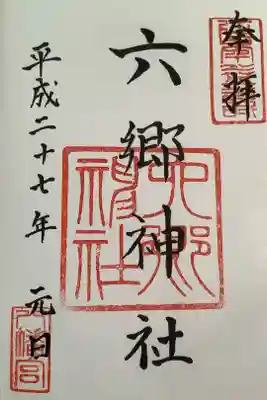 奉拝
六郷神社
平成二十七年 元日
六郷神社